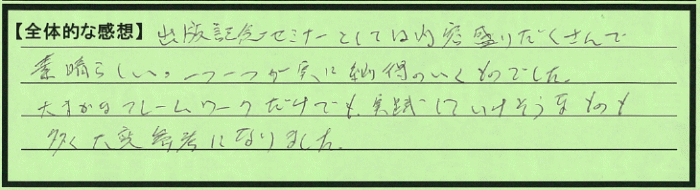 【全体的な感想】出版記念セミナーとしては内容盛りだくさんで
素晴らしい。一つ一つが実に納得のいくものでした。
大まかなフレームワークだけでも、実践していけそうなものも
多く大変参考になりました。